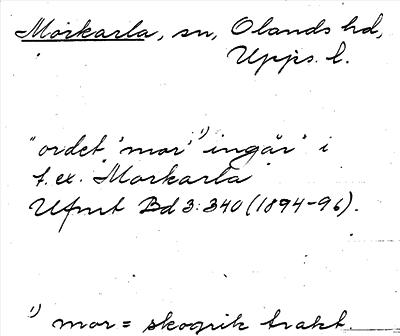 Morkarla, sn, Olands hd,
Upps. l.
"ordet 'mor' ¹) ingår i
t.ex. Morkarla"
Ufmt Bd 3:340 (1894-96).
¹) mor = skogrik trakt.